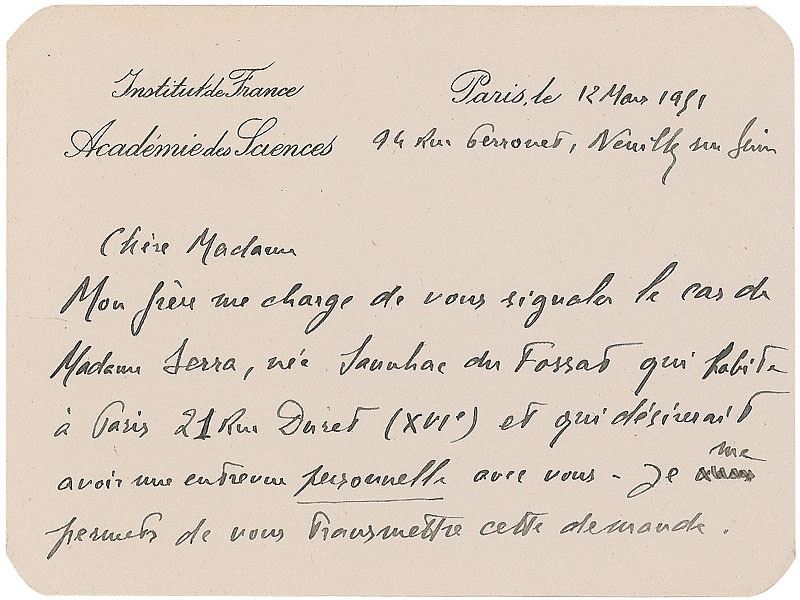 Institut de France
Académie des Sciences
Paris, le 12 Mars 1951
94 Rue Perronet, Neuilly sur Seine
Chère Madame
Mon frère me charge de vous signaler le cas de
Madame Serra, née du Fossat qui habite
à Paris 21 Rue Duret (XVIe) et qui désirerait
avoir une entrevue personnelle avec vous - Je me
permets de vous transmettre cette demande.